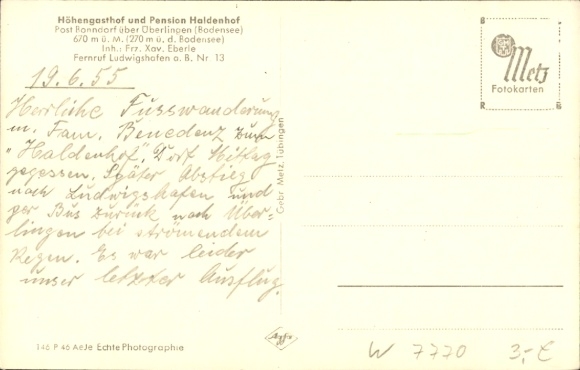 Höhengasthof und Pension Haldenhof
Post Bonndorf über Überlingen (Bodensee)
670 m ü. M. (270 m ü. d. Bodensee)
Inh.: Frz. Xav. Eberle
Fernruf Ludwigshafen a. B. Nr 13
19.6.55
Herrliche Fusswanderung
m. Fam. Benedenz zum
"Haldenhof". Dort Mittag
gegessen. Später Abstieg
nach Ludwigshafen und
per Bus zurück nach Über-
lingen bei strömendem
Regen. Es war leider
unser letzter Ausflug.
Gebr. Metz, Tübingen
B
R
Metz
Fotokarten
Agfa
146 P 46 AeJe Echte Photographie
W 7770 3,- €